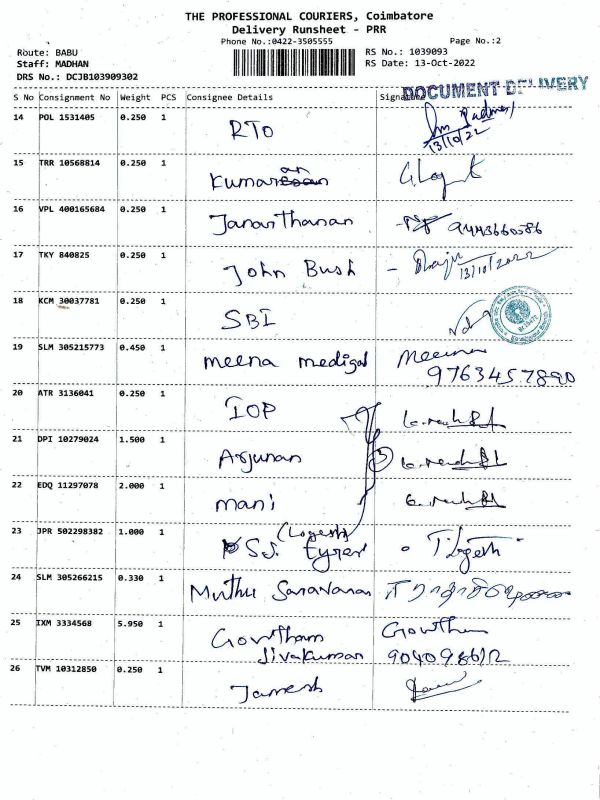 THE PROFESSIONAL COURIERS, Coimbatore
Delivery Runsheet - PRR
Phone No.:0422-3505555 Page No.:2
Route: BABU RS No.: 1039093
Staff: MADHAN RS Date: 13-Oct-2022
DRS No.: DCJB103909302
DOCUMENT DELIVERY
S No Consignment No Weight PCS Consignee Details Signature
14 POL 1531405 0.250 1 RTO
13/10/22
15 TRR 10568814 0.250 1 Kumaran
16 VPL 400165684 0.250 1 Janarthanan 9443660586
17 TKY 840825 0.250 1 John Bush - Raju
13/10/2022
18 KCM 30037781 0.250 1 SBI
19 SLM 305215773 0.450 1 meena medigal Meena
9763457890
20 ATR 3136041 0.250 1 IOP
21 DPI 10279024 1.500 1 Arjunan 3
22 EDQ 11297078 2.000 1 mani
23 JPR 502298382 1.000 1 (Logesh)
S.J. Tyres
24 SLM 305266215 0.330 1 Muthu Saravanan
25 IXM 3334568 5.950 1 Gowtham Gowtham
Jivakumar
26 TVM 10312850 0.250 1 Jamesh